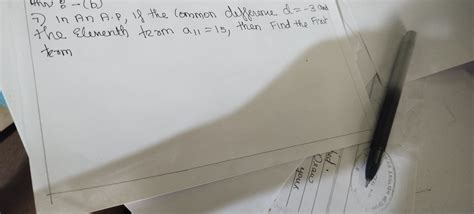 Ans 6 - (b)
7) In An A.P, if the Common difference d = -3 and
the Elementh term a11 = 15, then Find the First
term
Draw
your